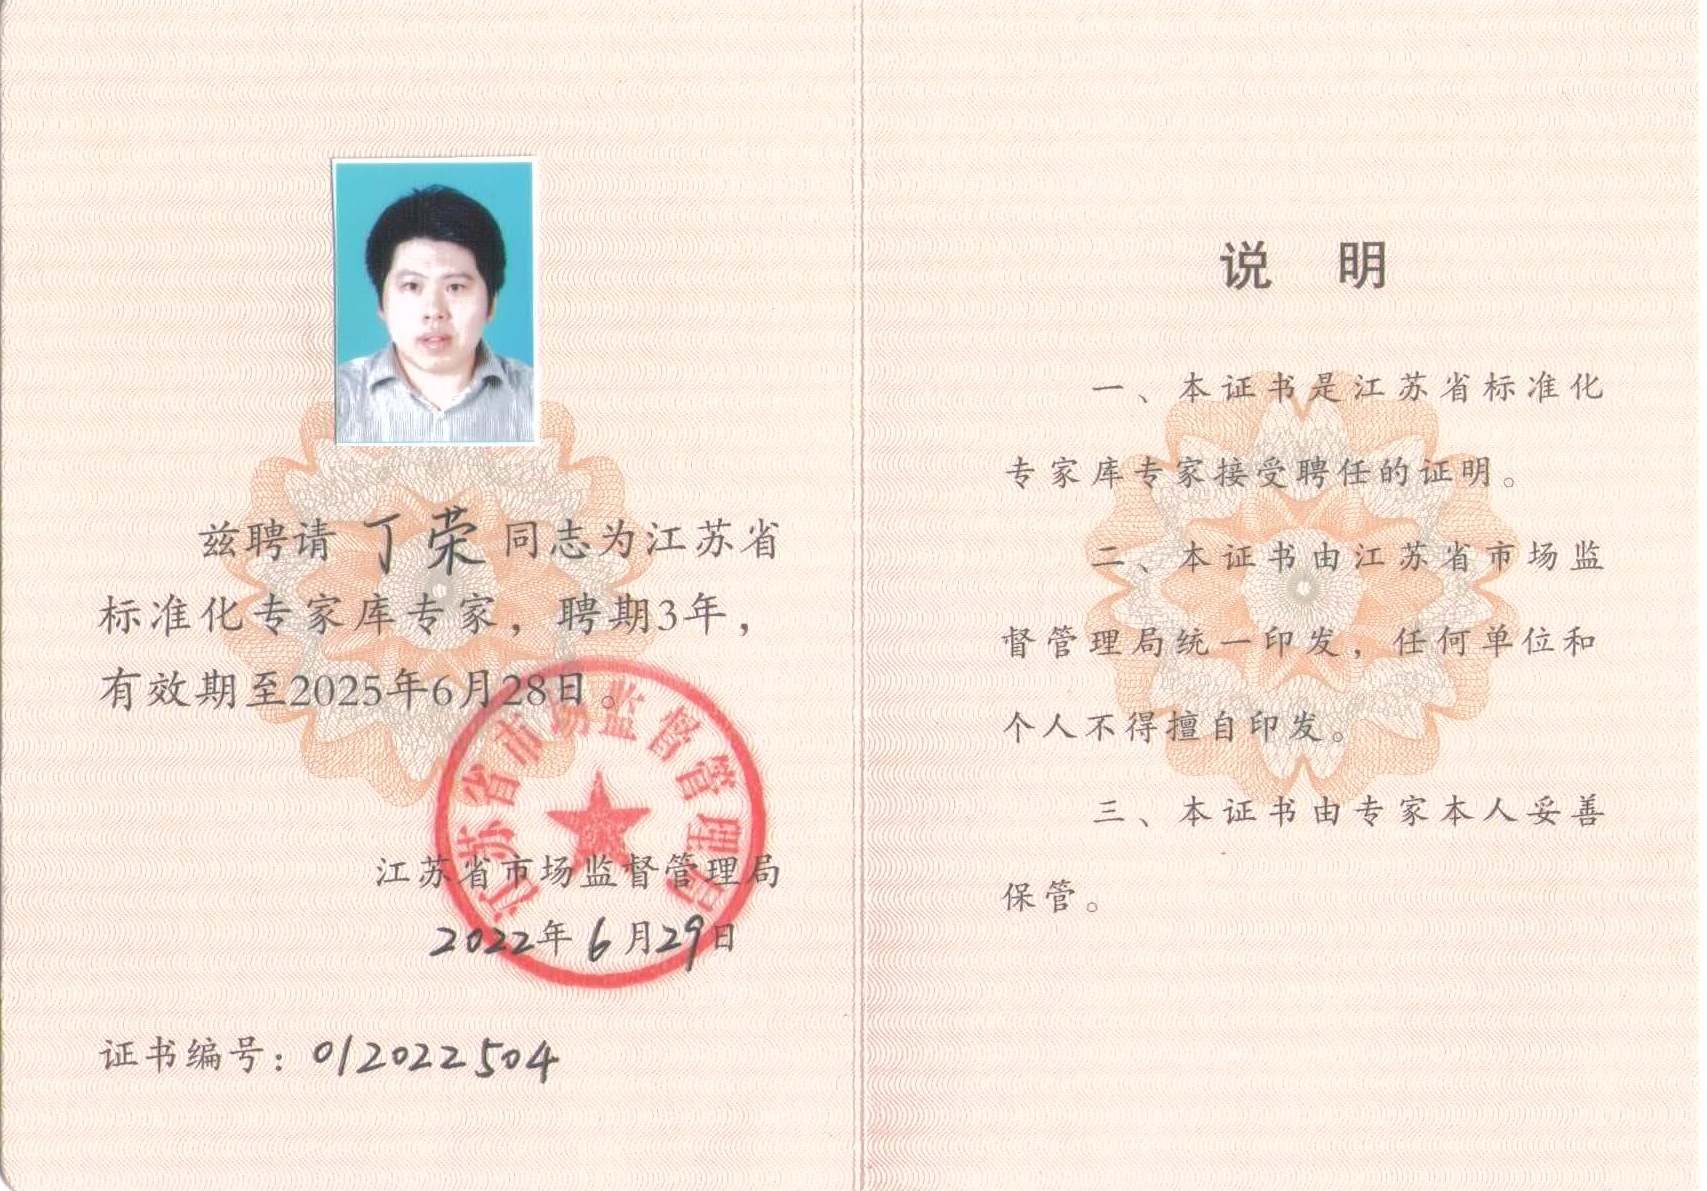 兹聘请 丁荣 同志为江苏省
标准化专家库专家，聘期3年，
有效期至2025年6月28日。
江苏省市场监督管理局
江苏省市场监督管理局
2022年6月29日
证书编号：012022504
说 明
一、本证书是江苏省标准化
专家库专家接受聘任的证明。
二、本证书由江苏省市场监
督管理局统一印发，任何单位和
个人不得擅自印发。
三、本证书由专家本人妥善
保管。